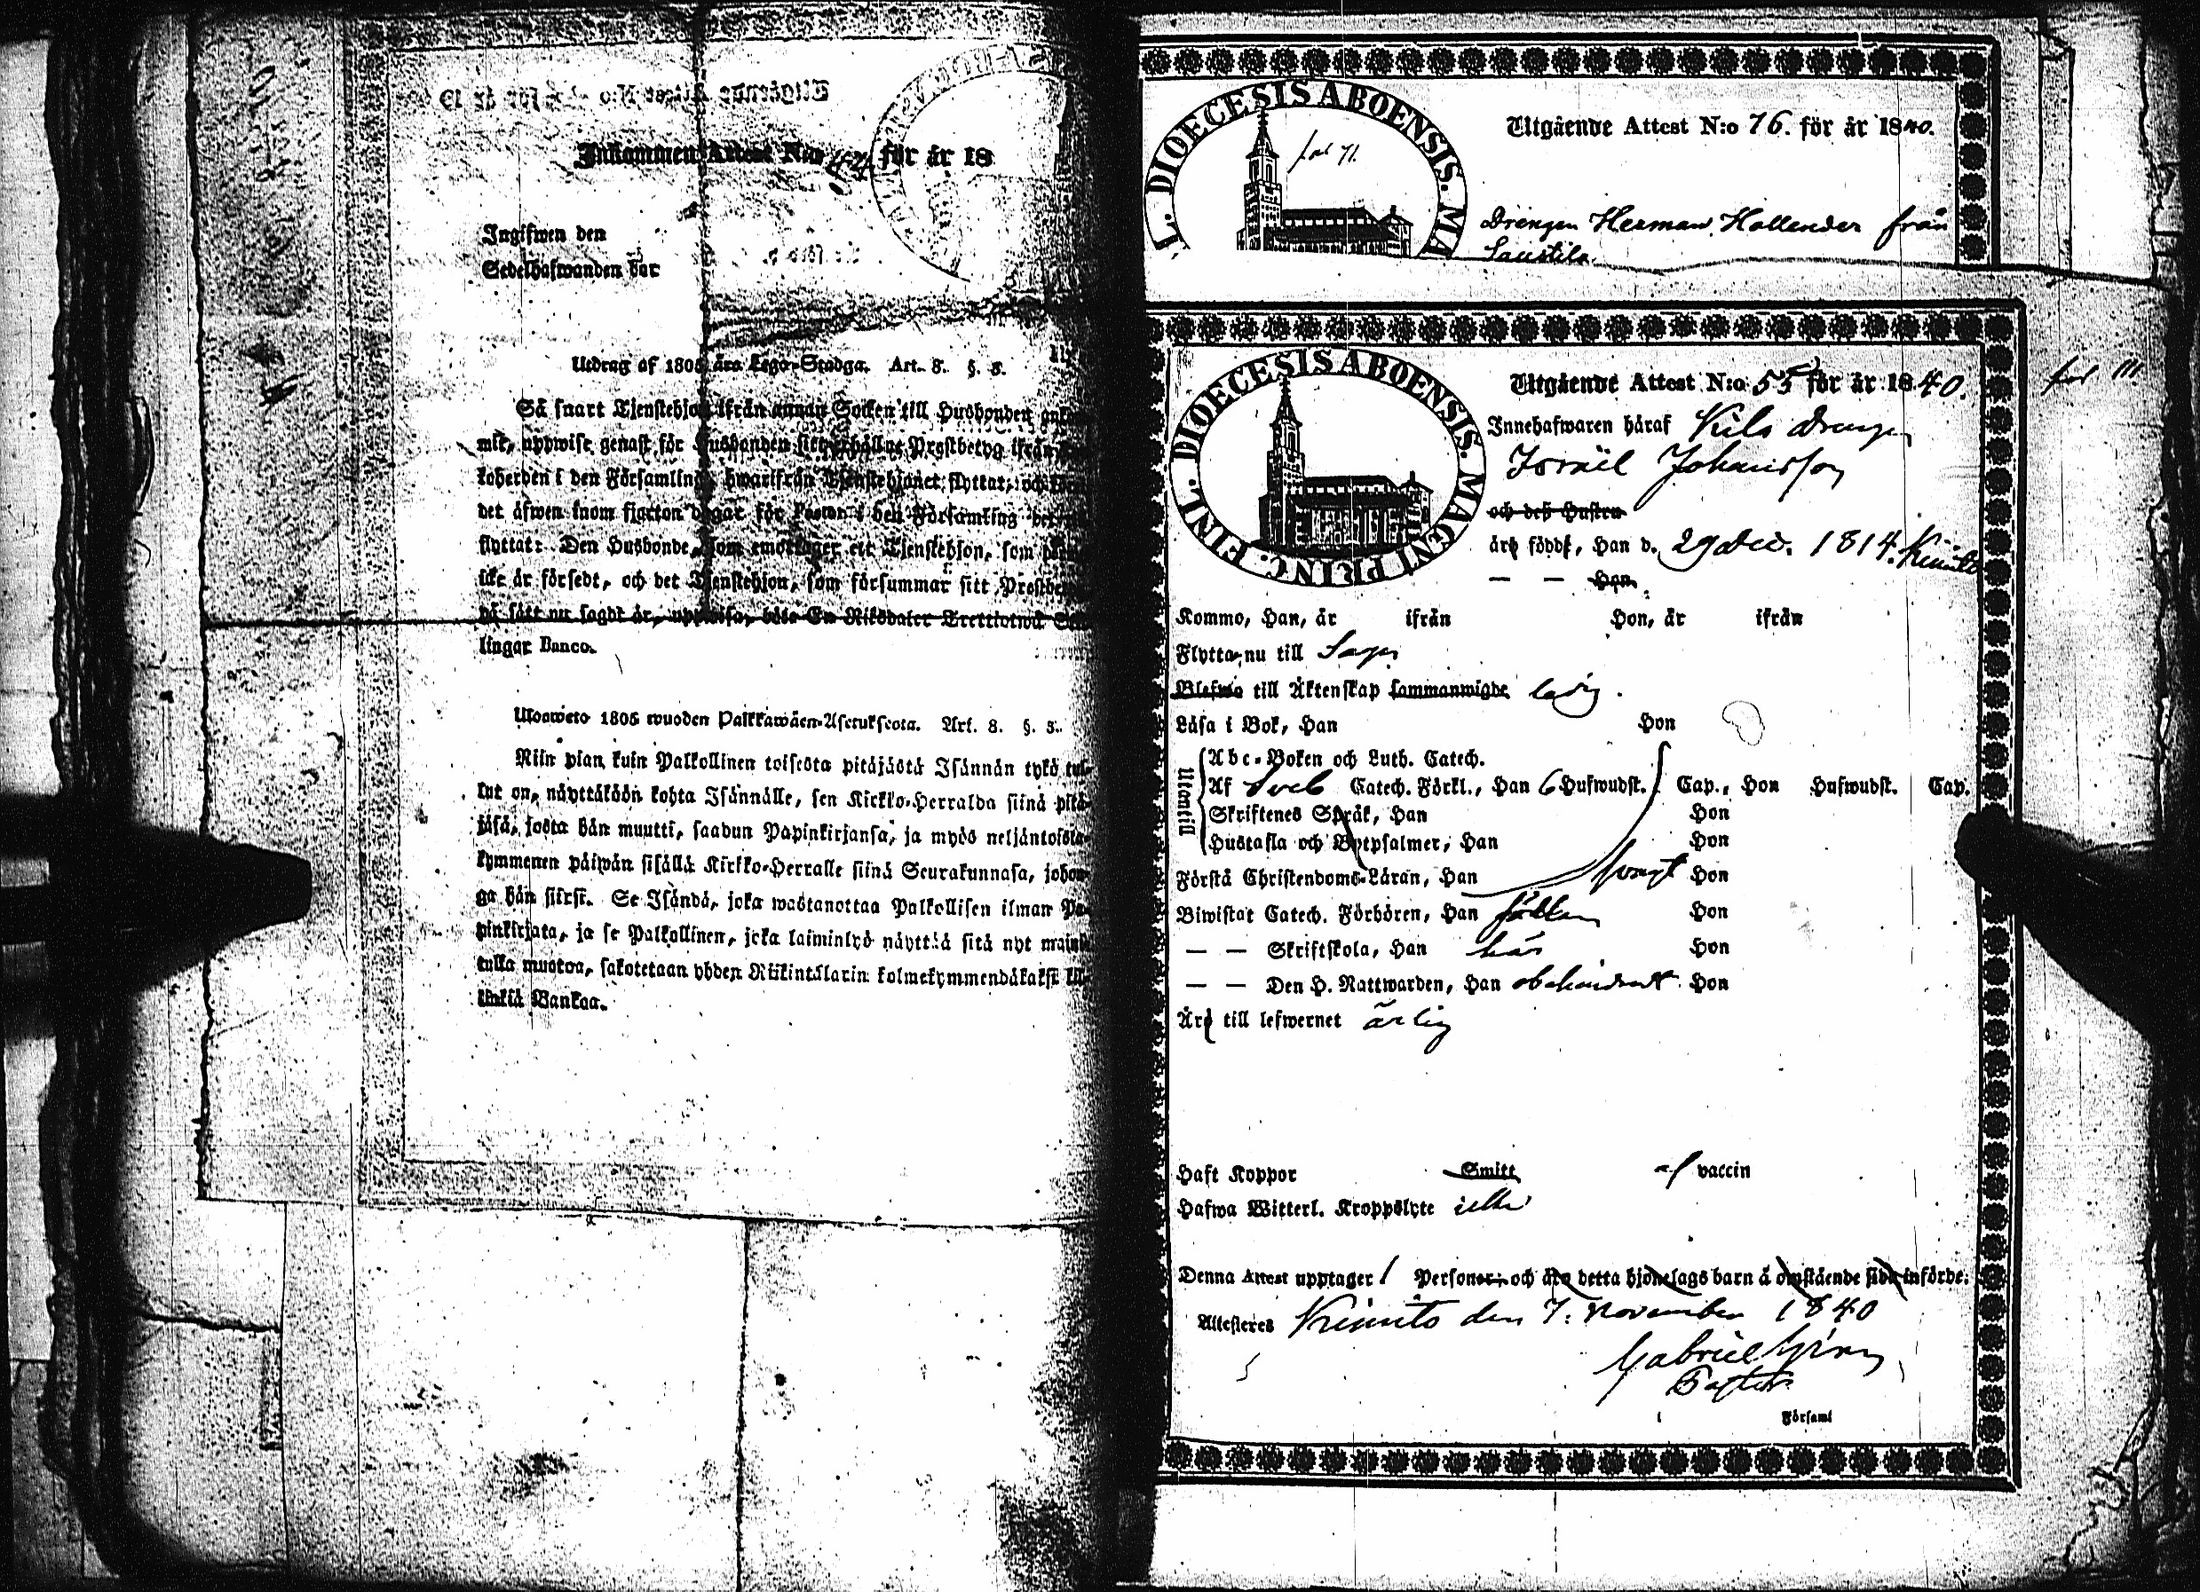 Inkommen Attest N:o 44 för år 18
Ingifwen den
Sedelhafwanden bär
Utdrag af 1805 års Lego-Stadga. Art. 8. §. 5.
Så snart Tjenstehjon ifrån annan Socken till Husbonden
mit, uppwise genast för Husbonden sitt erhållne Prestbetyg ifrån
koherden i den Församling, hwarifrån Tjenstehjonet flyttat; och
det äfwen inom fjorton dagar för Pastor i den Församling
flyttat: Den Husbonde, som emottager ett Tjenstehjon, som
icke är försedt, och det Tjenstehjon, som försummar sitt
på sätt nu sagdt är, uppwisa, böte En Riksdaler Trettiotwå
lingar Banco.
Ulosweto 1805 wuoden Palkkawäen-Asetuksesta. Art. 8. §. 5.
Niin pian kuin Palkollinen toisesta pitäjästä Isännän tykö tul-
lut on, näyttäköön kohta Isännälle, sen Kirkko-Herralda siinä pitä-
jäsä, josta hän muutti, saadun Papinkirjansa, ja myös neljäntoista-
kymmenen päiwän sisällä Kirkko-Herralle siinä Seurakunnasa, johon-
ga hän siirsi. Se Isändä, joka wastanottaa Palkollisen ilman Pa-
pinkirjata, ja se Palkollinen, joka laiminlyö näyttää sitä nyt
tulla muotoa, sakotetaan yhden Riikintalarin kolmekymmendäkaksi kil-
linkiä Bankaa.
L. DIOECESIS ABOENSIS. MA
fol 71.
Utgående Attest N:o 76. för år 1840.
Drengen Herman Hollender från
Saustila.
FINL. DIOECESIS ABOENSIS. MAGNI PRINC.
Utgående Attest N:o 55 för år 1840.
fol 111.
Innehafwaren häraf Kila drengen
Israël Johansson
och deß Hustru
äro född, Han d. 29 Dec. 1814. Kimito
— — Hon
Kommo, Han, år ifrån Hon, år ifrån
Flytta nu till Sagu
Blefwo till Äktenskap sammanwigde ledig.
Läsa i Bok, Han Hon
Utomtill
Abc-Boken och Luth. Catech.
Af Sveb Catech. Förkl., Han 6 Hufwudst. Cap., Hon Hufwudst. Cap.
Skriftenes Språk, Han Hon
Hustafla och Botpsalmer, Han Hon
Förstå Christendoms-Läran, Han svagt Hon
Biwistat Catech. Förhören, Han sällan Hon
— — Skriftskola, Han här Hon
— — Den H. Nattwarden, Han obehindradt Hon
Äro till lefwernet ärlig
Haft Koppor Smitt af vaccin
Hafwa Witterl. Kroppslyte icke
Denna Attest upptager 1 Personer, och äro detta hjonelags barn å omstående sida införde.
Attesteres Kimito den 7: November 1840
Gabriel
Pastor
i Församl